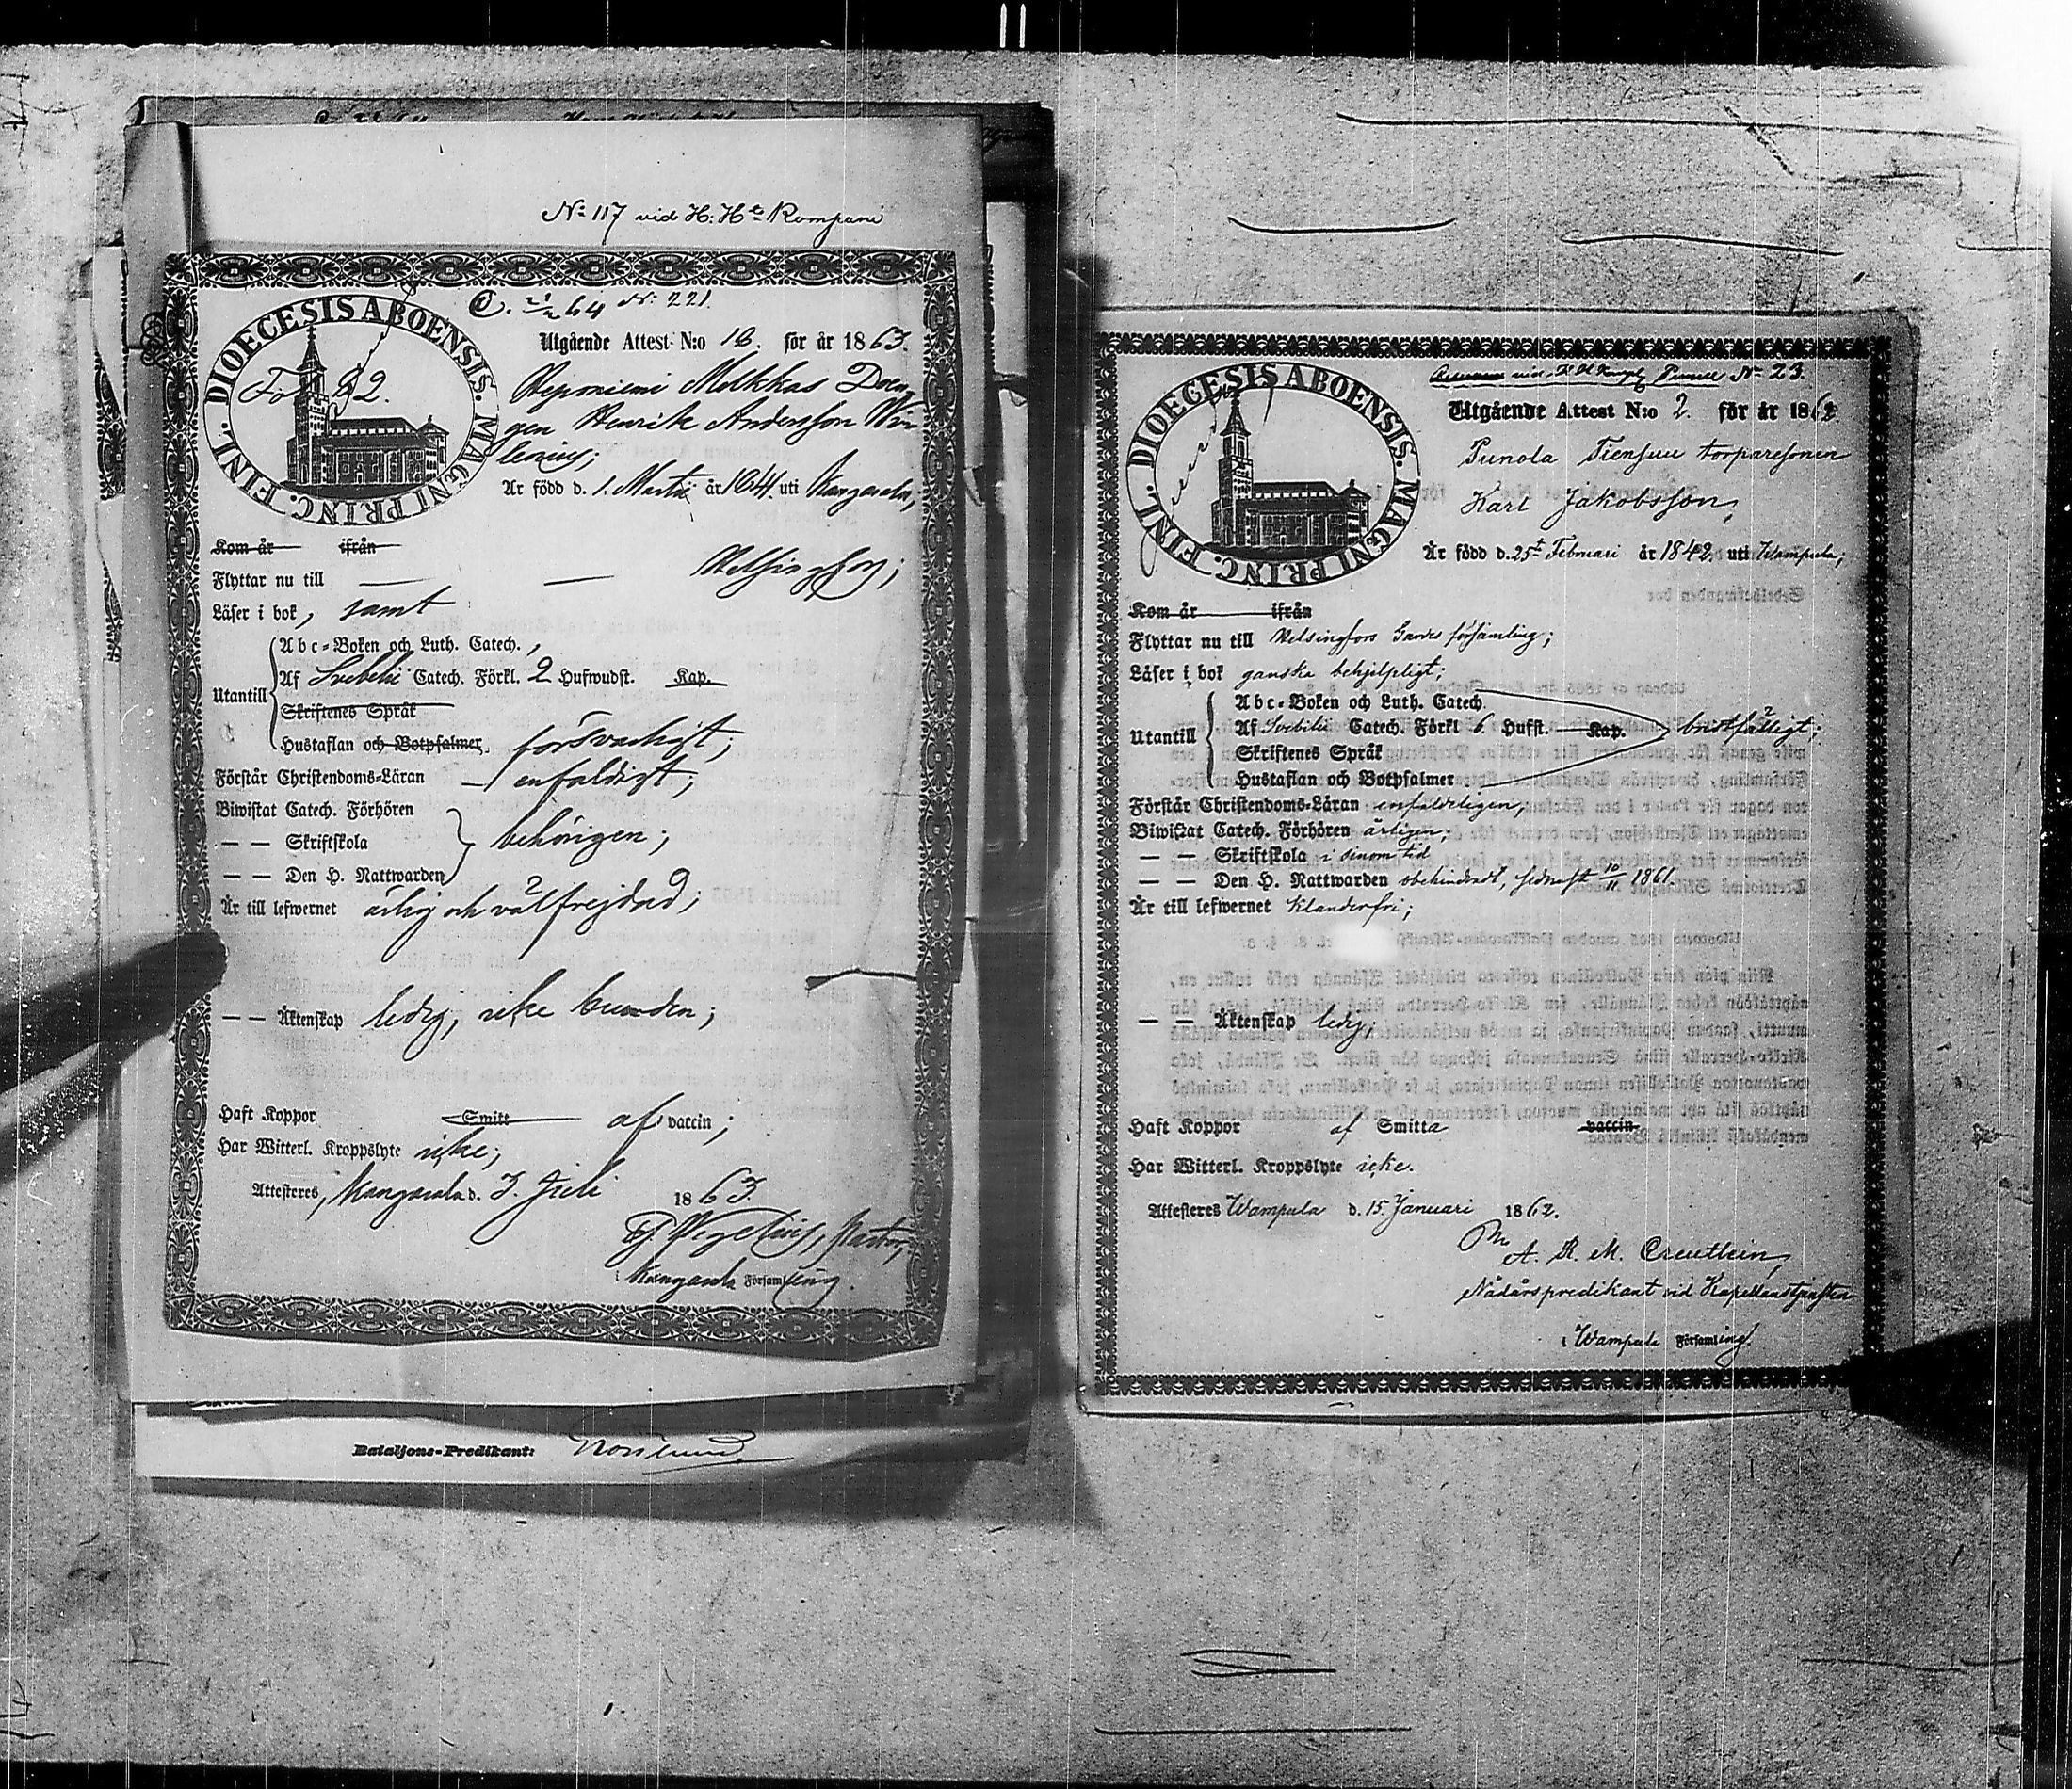 No 117 vid H: Hs Kompani
DIOECESIS ABOENSIS. MAGNI PRINC. FINL.
Fol 82.
N: 221.
Utgående Attest N:o för år 1863.
Melkkas Dren
gen Henrik Andersson
Är född d. 1. Martii år 1841. uti Kangasala,
Kom år ifrån
Flyttar nu till — — Helsingfors;
Läser i bok, samt
Abc-Boken och Luth. Catech.,
Utantill
Af Svebelii Catech. Förkl. 2 Hufwudst. Kap.
Skriftenes Språk
Hustaflan och Botpsalmer, försvarligt;
Förstår Christendoms-Läran — enfaldigt;
Biwistat Catech. Förhören
— — Skriftskola behörigen;
— — Den H. Nattwarden
Är till lefwernet ärlig och välfrejdad;
— — Äktenskap ledig, icke bunden;
Haft Koppor Smitt af vaccin;
Har Witterl. Kroppslyte icke;
Attesteres, Kangasala d. 3. Juli 1863.
Pastor,
i Kangasala Församling.
Bataljons-Predikant:
DIOECESIS ABOENSIS. MAGNI PRINC. FINL.
No 23.
Utgående Attest N:o 2. för år 1862.
Punola Tiensuu torparesonen
Karl Jakobsson,
Är född d. 25t Februari år 1842. uti Wampula;
Kom år ifrån
Flyttar nu till Helsingfors Gardes församling;
Läser i bok ganska behjelpligt;
Abc-Boken och Luth. Catech.
Utantill
Af Svebilii Catech. Förkl 6. Hufst. Kap. bristfälligt;
Skriftenes Språk
Hustaflan och Botpsalmer
Förstår Christendoms-Läran enfaldeligen,
Biwistat Catech. Förhören årligen;
— — Skriftskola i sinom tid
— — Den H. Nattwarden obehindradt, sednast 10/11 1861
Är till lefwernet klanderfri;
— — Äktenskap ledig;
Haft Koppor af Smitta vaccin
Har Witterl. Kroppslyte icke.
Attesteres Wampula d. 15. Januari 1862.
A. R. M. Creutlein,
Nådårspredikant vid Kapellanstjensten
i Wampula Församling.